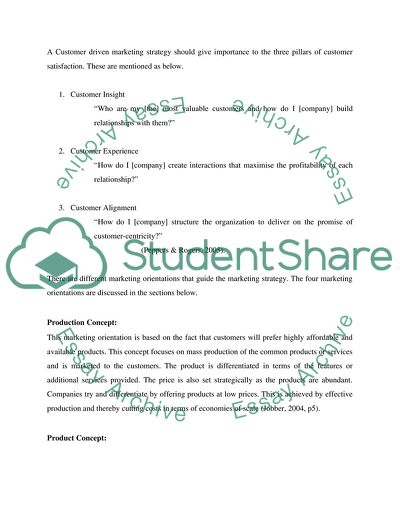 A Customer driven marketing strategy should give importance to the three pillars of customer
satisfaction. These are mentioned as below.
1. Customer Insight
“Who are my [the] most valuable customers and how do I [company] build
relationships with them?”
2. Customer Experience
“How do I [company] create interactions that maximise the profitability of each
relationship?”
3. Customer Alignment
“How do I [company] structure the organization to deliver on the promise of
customer-centricity?”
(Peppers & Rogers, 2005)
StudentShare
There are different marketing orientations that guide the marketing strategy. The four marketing
orientations are discussed in the sections below.
Production Concept:
This marketing orientation is based on the fact that customers will prefer highly affordable and
available products. This concept focuses on mass production of the common products or services
and is marketed to the customers. The product is differentiated in terms of the features or
additional services provided. The price is also set strategically as the products are abundant.
Companies try and differentiate by offering products at low prices. This is achieved by effective
production and thereby cutting costs in terms of economies of scale (Jobber, 2004, p5).
Product Concept:
Essay Essay Essay
Essay Essay Essay
Essay Essay Essay
Essay Essay Essay